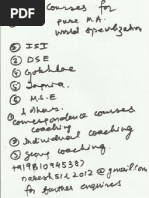 courses for
pure M.A.
world specialization
① ISI
② DSE
③ Gokhlae
④
⑤ M.S.E
& others.
correspondence courses
coaching
② Individual coaching
③ group coaching
+919810945387
naresh512012@gmail.com
for further enquires